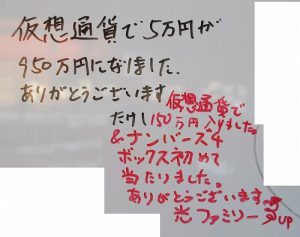 仮想通貨で5万円が
950万円になりました.
ありがとうございます
たけし
仮想通貨で
150万円入りました。
&ナンバーズ4
ボックス初めて
当たりました。
ありがとうございます。
光ファミリー
UP